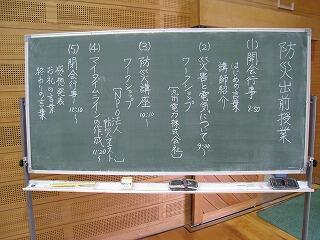 防災出前授業
(1) 開会行事 8:50
はじめの言葉
講師紹介
(2) 災害と電気について 9:00
ワークショップ
【九州電力株式会社】
(3) 防災講座 10:10
ワークショップ
【NPO法人
(4) マイタイムラインの作成 11:20
(5) 閉会行事 12:10
感想発表
お礼の言葉
終わりの言葉